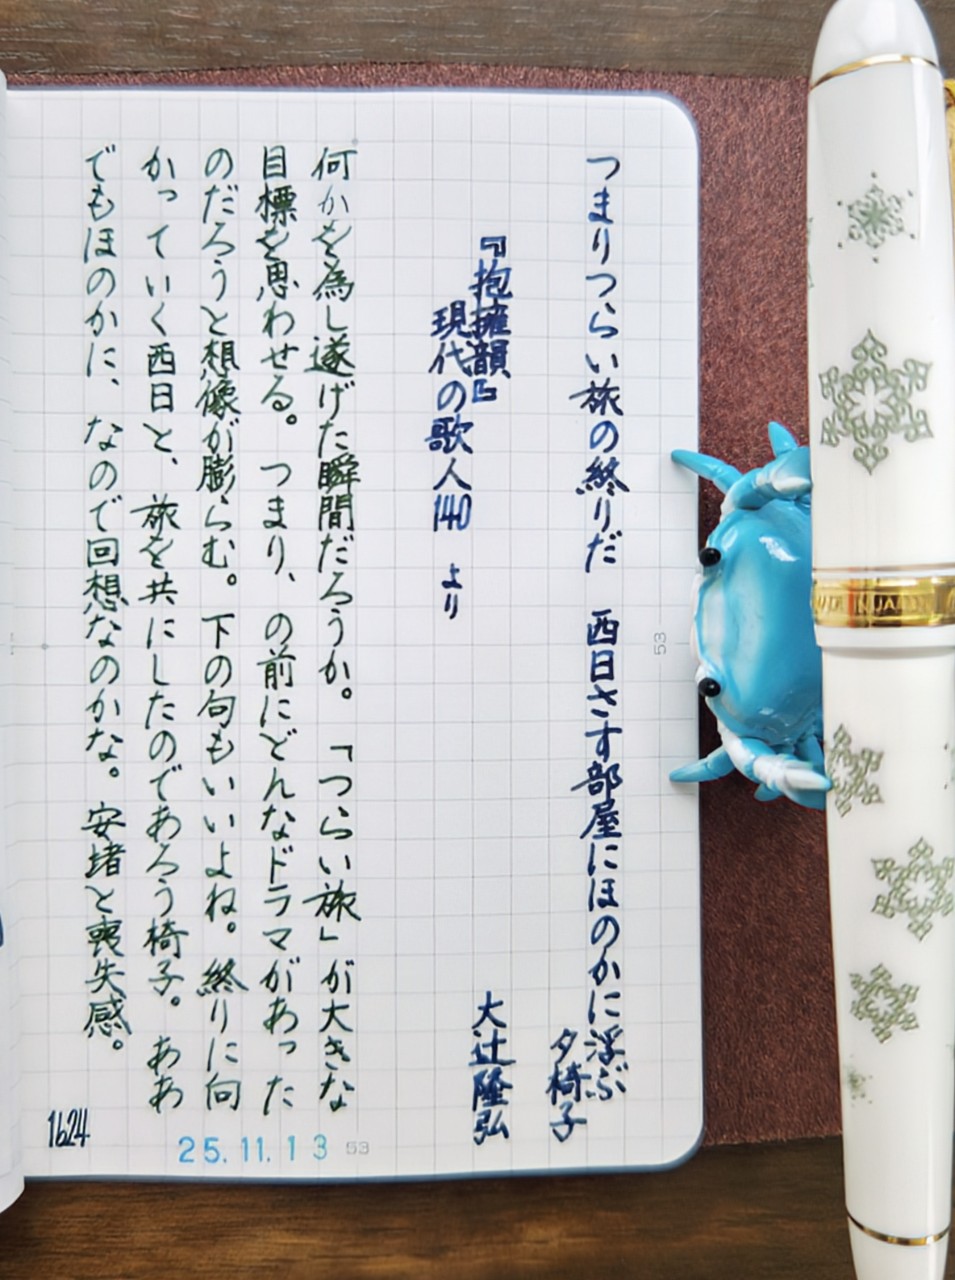 つまりつらい旅の終りだ　西日さす部屋にほのかに浮ぶ
夕椅子
『抱擁韻』
大辻隆弘
現代の歌人140　より
何かを為し遂げた瞬間だろうか。「つらい旅」が大きな
目標を思わせる。　つまり、の前にどんなドラマがあった
のだろうと想像が膨らむ。下の句もいいよね。終りに向
かっていく西日と、旅を共にしたのであろう椅子。ああ
でもほのかに、なので回想なのかな。安堵と喪失感。
1624
25.11.13
53
53